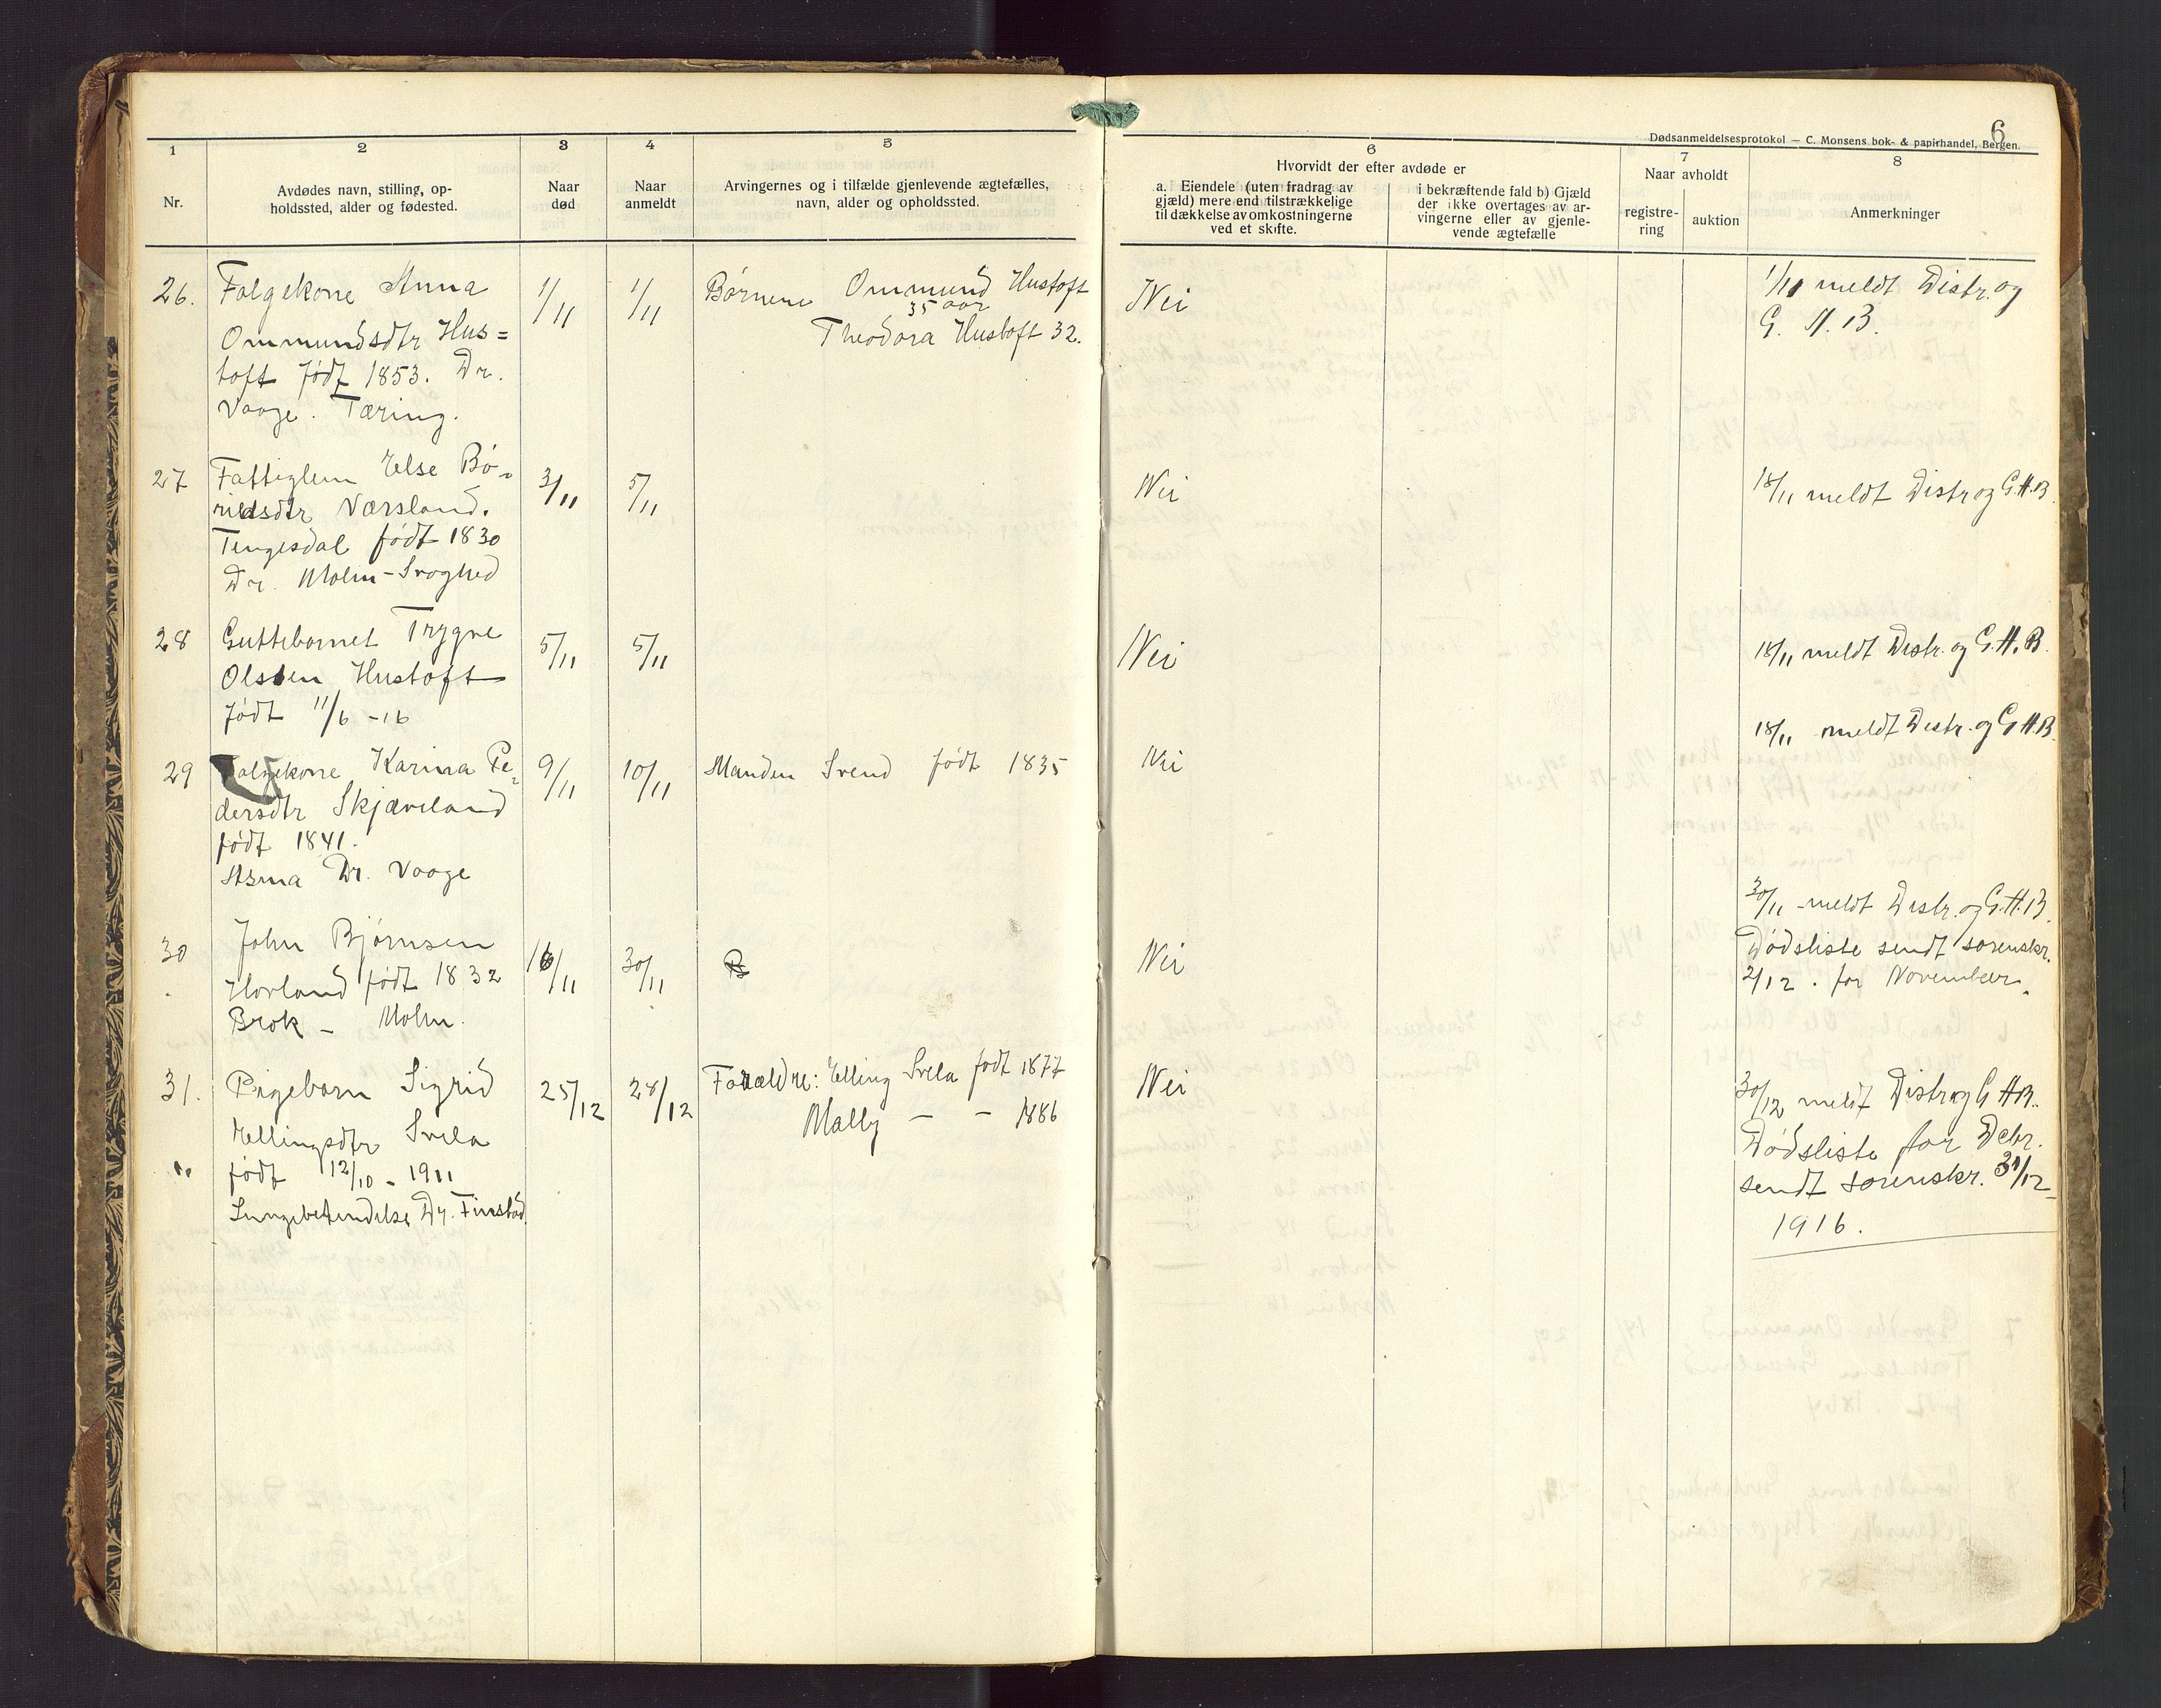 6
Dødsanmeldelsesprotokol — C. Monsens bok- & papirhandel, Bergen.
1
Nr.
2
Avdødes navn, stilling, op-
holdssted, alder og fødested.
3
Naar
død
4
Naar
anmeldt
5
Arvingernes og i tilfælde gjenlevende ægtefælles,
navn, alder og opholdssted.
6
Hvorvidt der efter avdøde er
a. Eiendele (uten fradrag av
gjæld) mere end tilstrækkelige
til dækkelse av omkostningerne
ved et skifte.
i bekræftende fald b) Gjæld
der ikke overtages av ar-
vingerne eller av gjenle-
vende ægtefælle
7
Naar avholdt
registre-
ring
auktion
8
Anmerkninger
26. Folgekone Anna 1/11 1/11 Børnene Ommund Hustoft Nei 1/11 meldt Distr. og
35 aar
Ommundsdtr Hus= Theodora Hustoft 32. G. H. B.
toft født 1853. Dr.
Vaage. Tæring.
27 Fattiglem Else Bå- 3/11 5/11 Nei 18/11 meldt Distr og G.H.B.
rdsdtr Værsland.
Tengesdal født 1830
Dr. Molm - Svaghed
28 Guttebarnet Trygve 5/11 5/11 Nei 18/11 meldt Distr. og G.H.B.
Olsen Hustoft
født 11/6 -16
18/11 meldt Distr. og G H.B.
29 Folgekone Karina Pe- 9/11 10/11 Manden Svend født 1835 Nei
dersdtr Skjæveland
født 1841.
Asma Dr. Vaage
30/11 meldt Distr. og G.H.B.
30 John Bjørnsen 16/11 30/11 B Nei Dødsliste sendt sorenskr.
Hovland født 1832 2/12. for November.
Brok - Molm.
31. Pigebarn Sigrid 25/12 28/12 Forældre: Elling Svela født 1877 Nei 30/12 meldt Distr og G H.B.
Ellingsdtr Svela Mally — — 1886 Dødsliste for Debr.
født 12/10 - 1911 sendt sorenskr. 31/12
Lungebetendelse Dr. Finstad. 1916.